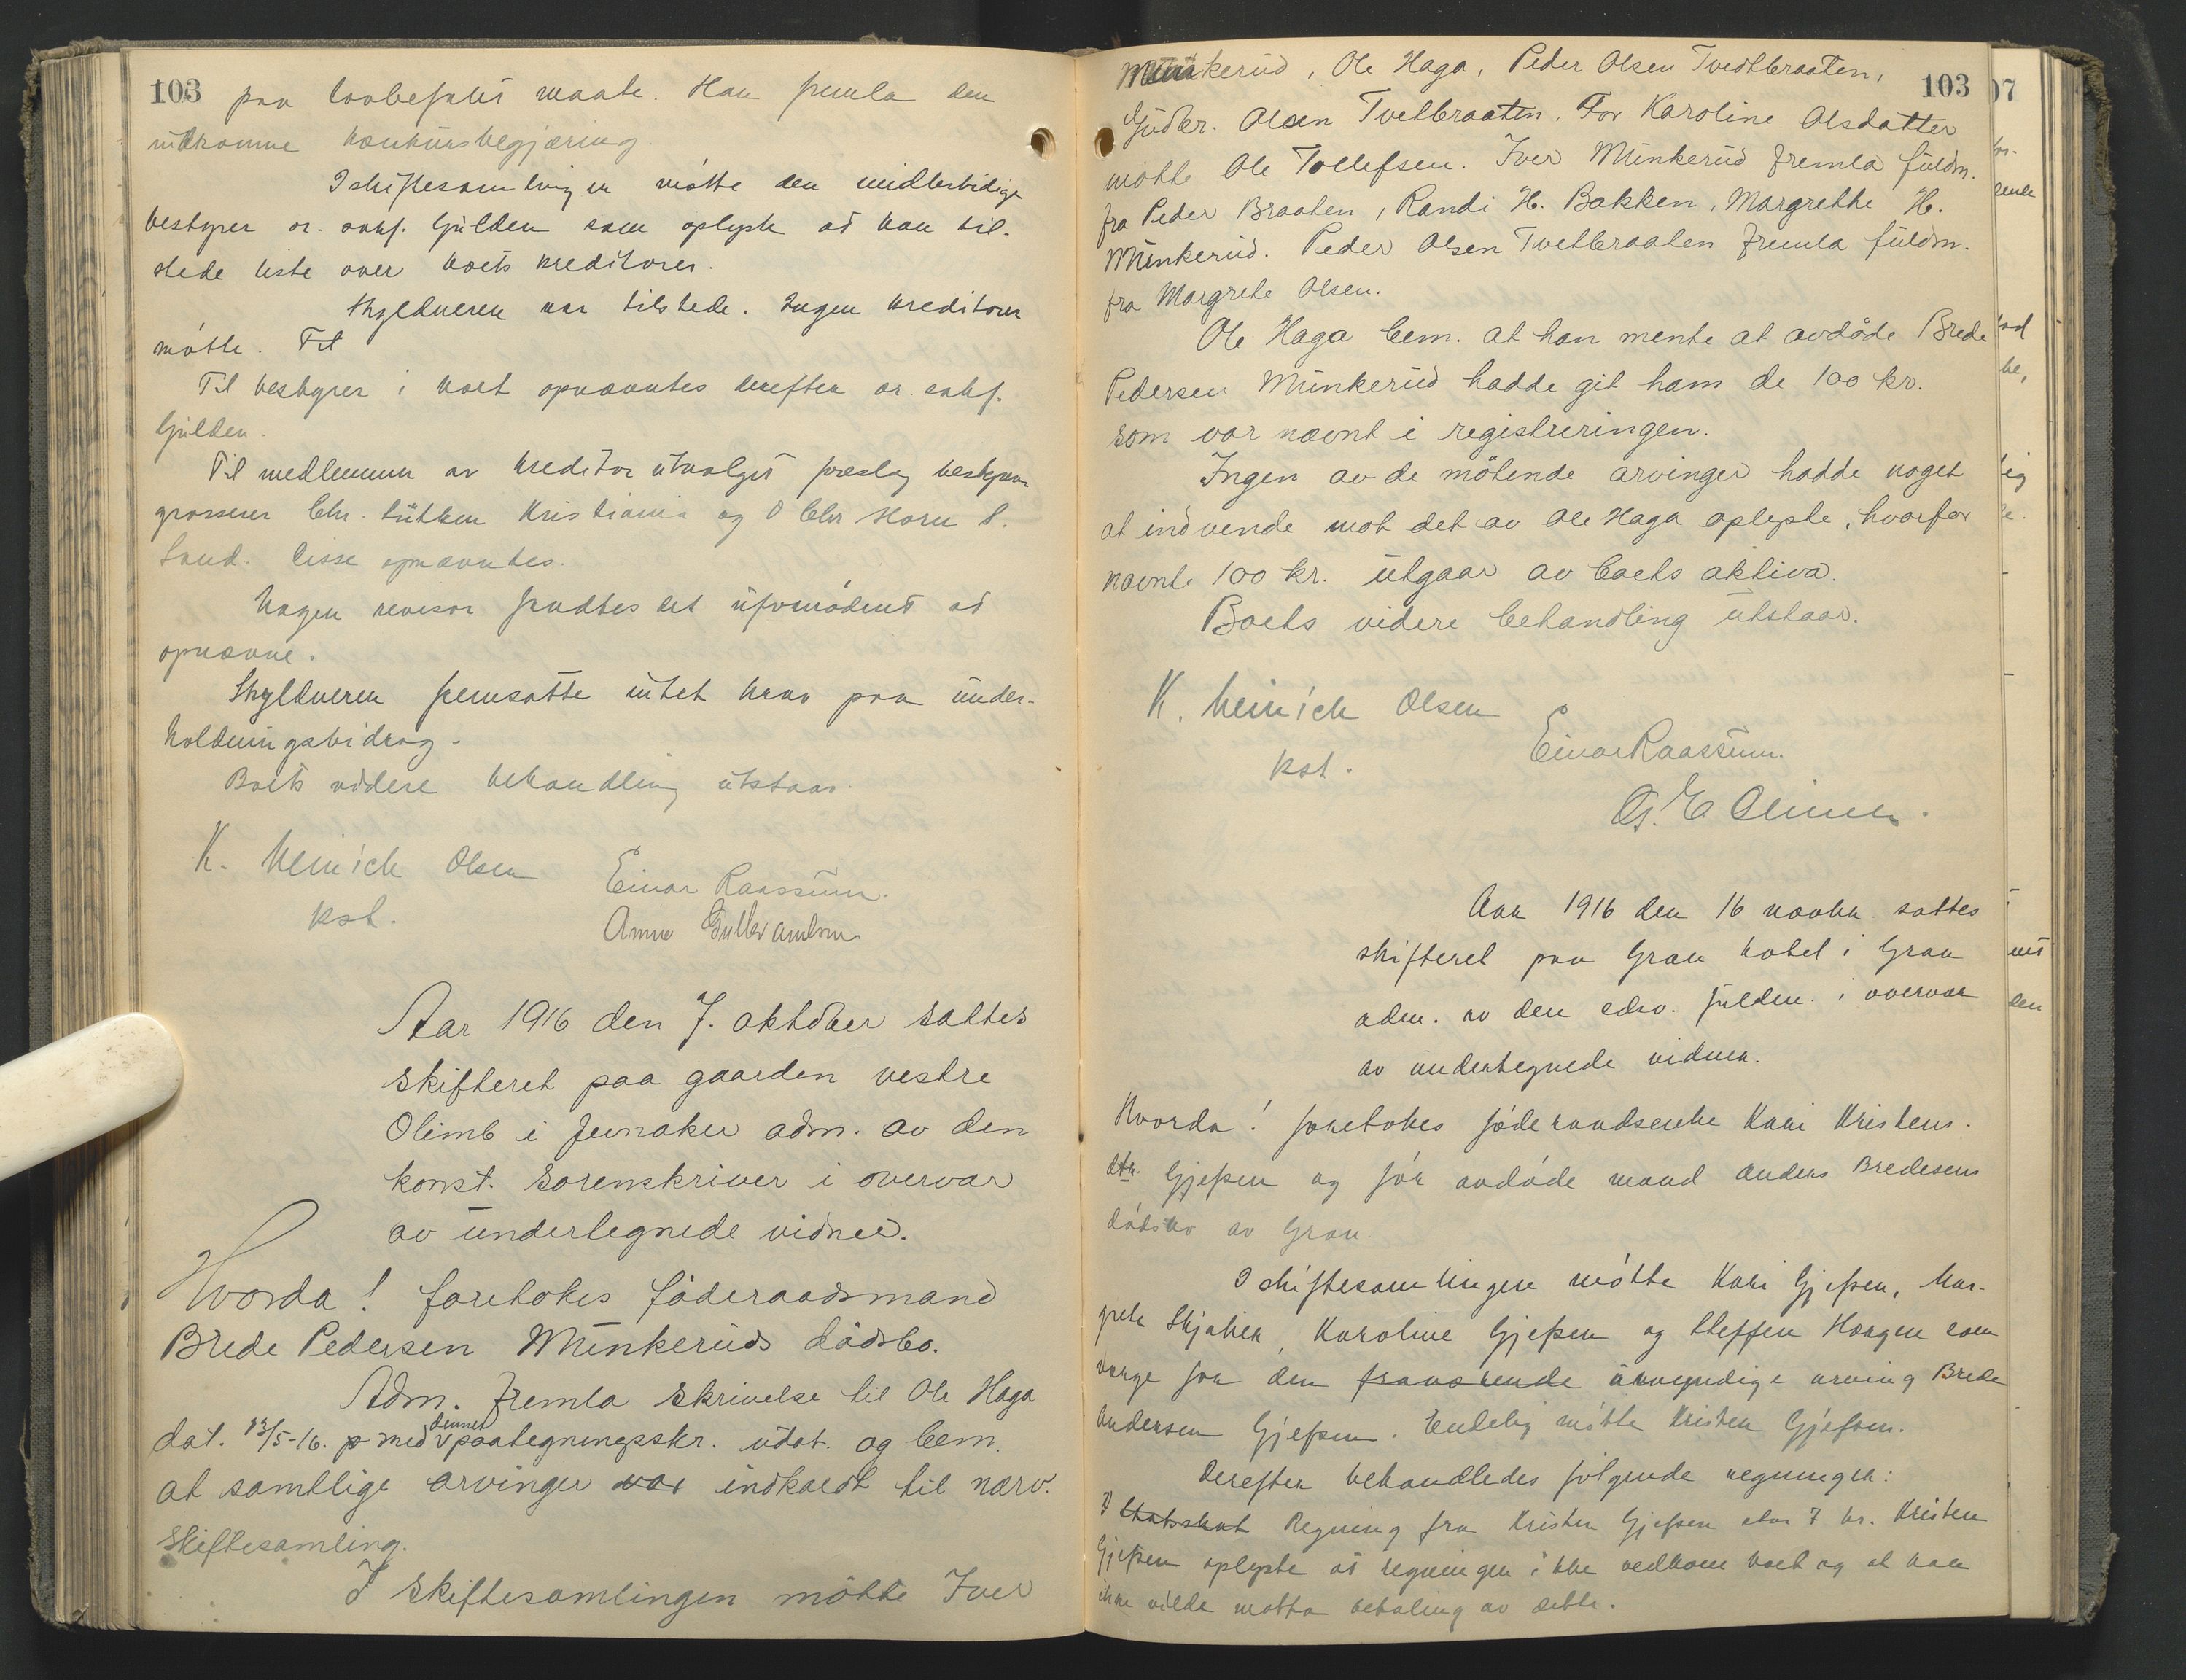 103
paa lovbefalt maate. Han fremla den
indkomne konkursbegjæring.
I skiftesamlingen møtte den midlertidige
bestyrer or. sakf. Gulden som oplyste at han til-
stede liste over boets kreditorer.
Skyldneren var tilstede. Ingen kreditorer
møtte. Til
Til bestyrer i boet opnævntes derefter or. sakf.
Gulden.
Til medlemmer av kreditorutvalget foreslog bestyreren
grosserer Chr. Lütken Kristiania og O Chr Horn S.
Land. Disse opnævntes.
Nogen revisor fandtes det ufornødent at
opnævne.
Skyldneren fremsatte intet krav paa under-
holdningsbidrag.
Boets videre behandling utstaar.
K. Heinrich Olsen
kst.
Einar Raassum.
Anne Gulbrandsen
Aar 1916 den 7. oktober sattes
skifteret paa gaarden vestre
Olimb i Jevnaker adm. av den
konst. sorenskriver i overvær
av undertegnede vidner.
Hvorda! foretokes føderaadsmand
Brede Pedersen Munkeruds dødsbo.
Adm. fremla skrivelse til Ole Haga
dat. 13/5-16. p med dennes paategningsskr. udat. og bem.
at samtlige arvinger var indkaldt til nærv.
skiftesamling.
I skiftesamlingen møtte Iver
103
Munkerud, Ole Haga, Peder Olsen Tvedtbraaten,
Gudbr. Olsen Tvetbraaten. For Karoline Olsdatter
møtte Ole Tollefsen. Iver Munkerud fremla fuldm.
fra Peder Braaten, Randi H. Bakken, Margrethe H.
Munkerud. Peder Olsen Tvetbraaten fremla fuldm.
fra Margrete Olsen.
Ole Haga bem. at han mente at avdøde Brede
Pedersen Munkerud hadde git ham de 100 kr.
som var nævnt i registreringen.
Ingen av de møtende arvinger hadde noget
at indvende mot det av Ole Haga oplyste, hvorfor
nævnte 100 kr. utgaar av boets aktiva.
Boets videre behandling utstaar.
K. Heinrich Olsen
kst.
Einar Raassum.
Aar 1916 den 16 novbr. sattes
skifteret paa Gran hotel i Gran
adm. av den edsv. fuldm. i overvær
av undertegnede vidner.
Hvorda! foretokes føderaadsenke Kari Kristens-
dtr. Gjefsen og før avdøde mand Anders Bredesens
dødsbo av Gran.
I skiftesamlingen møtte Kari Gjefsen, Mar-
grete Skjaker, Karoline Gjefsen og Steffen Horgen som
verge for den fraværende umyndige arving Brede
Andersen Gjefsen. Endelig møtte Kristen Gjefsen.
Derefter behandledes følgende regninger:
Statsskat Regning fra Kristen Gjefsen stor 7 kr. Kristen
Gjefsen oplyste at regningen ikke vedkom boet og at han
ikke vilde motta betaling av dette.
07